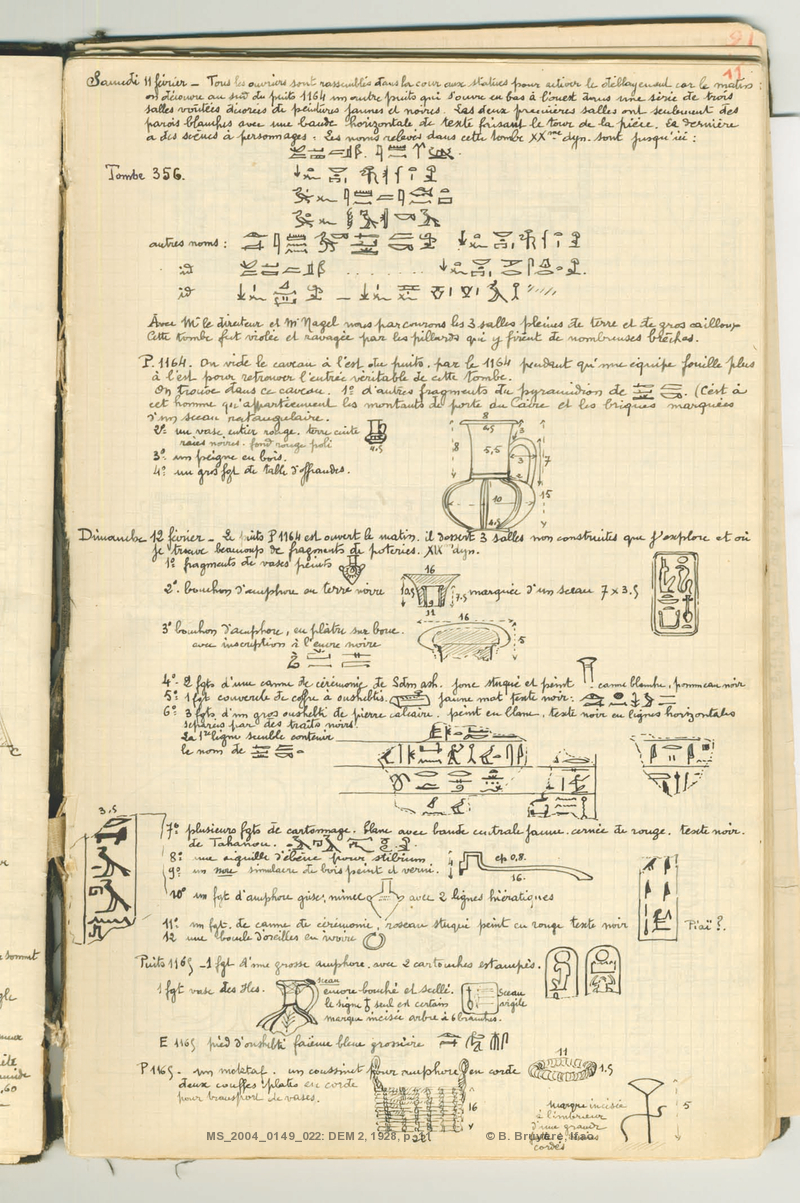 91
11
Samedi 11 février _ Tous les ouvriers sont rassemblés dans la cour aux statues pour activer le déblayement car le matin
on découvre au sud du puits 1164 un autre puits qui s'ouvre en bas à l'ouest dans une série de trois
salles voutées décorées de peintures jaunes et noires. Les deux premières salles ont seulement des
parois blanches avec une bande horizontale de texte faisant le tour de la pièce. La dernière
a des scènes à personnages. Les noms relevés dans cette tombe XX me dyn. sont jusqu'ici :
Tombe 356.
autres noms :
id
id
Avec Mr le directeur et Mr Nagel nous parcourons les 3 salles pleines de terre et de gros cailloux
Cette tombe fut violée et ravagée par les pillards qui y firent de nombreuses brèches.
P. 1164. On vide le caveau à l'est du puits, par le 1164 pendant qu'une équipe fouille plus
à l'est pour retrouver l'entrée véritable de cette tombe.
On trouve dans ce caveau. 1º d'autres fragments du pyramidion de (C'est à
cet homme qu'appartiennent les montants de porte du Caire et les briques marquées
d'un sceau rectangulaire.
2º un vase entier rouge. terre cuite
raies noires. fond rouge poli
3º un peigne en bois.
4º un gros fgt de table d'offrandes.
8
4,5
8
5,5
3
3
7
2
10
15
4,5
Dimanche 12 février _ Le puits P 1164 est ouvert le matin. il dessert 3 salles non construites que j'explore et où
je trouve beaucoup de fragments de poteries. XIX dyn.
1º fragments de vases peints
2º. bouchon d'amphore en terre noire
16
10,5
7,5
9
11
marquée d'un sceau 7 x 3,5
3º bouchon d'amphore, en plâtre sur boue.
avec inscription à l'encre noire
16
5
4º. 2 fgts d'une canne de cérémonie de Sdm ash. jonc stuqué et peint . canne blanche, pommeau noir
5º 1 fgt couvercle de coffre à oushebtis. jaune mat texte noir.
6º 3 fgts d'un gros oushebti de pierre calcaire. peint en blanc. texte noir en lignes horizontales
séparées par des traits noirs.
La 1re ligne semble contenir
le nom de
3,5
7º plusieurs fgts de cartonnage. blanc avec bande centrale jaune. cernée de rouge. texte noir.
de Tahanou.
8º une aiguille d'ébène pour stibium.
9º un nou simulacre de bois peint et verni.
ep 0,8.
4
16.
10º un fgt d'amphore grise, mince avec 2 lignes hiératiques
11º un fgt. de canne de cérémonie, roseau stuqué peint en rouge texte noir
Piaï ?.
12 une boucle d'oreilles en ivoire
Puits 1165 _ 1 fgt d'une grosse amphore. avec 2 cartouches estampés.
1 fgt vase des Iles.
sceau
encore bouché et scellé.
le signe seul est certain
marque incisée arbre à 6 branches.
Sceau
argile
E 1165 pied d'oushebti faïence bleue grossière
P 1165. un maktaf. un coussinet pour amphore en corde
11
1,5
deux couffes plates en corde
pour transport de vases.
16
marque incisée
à l'intérieur
d'une grande
5
MS_2004_0149_022: DEM 2, 1928, p. 11
© B. Bruyère, Ifao